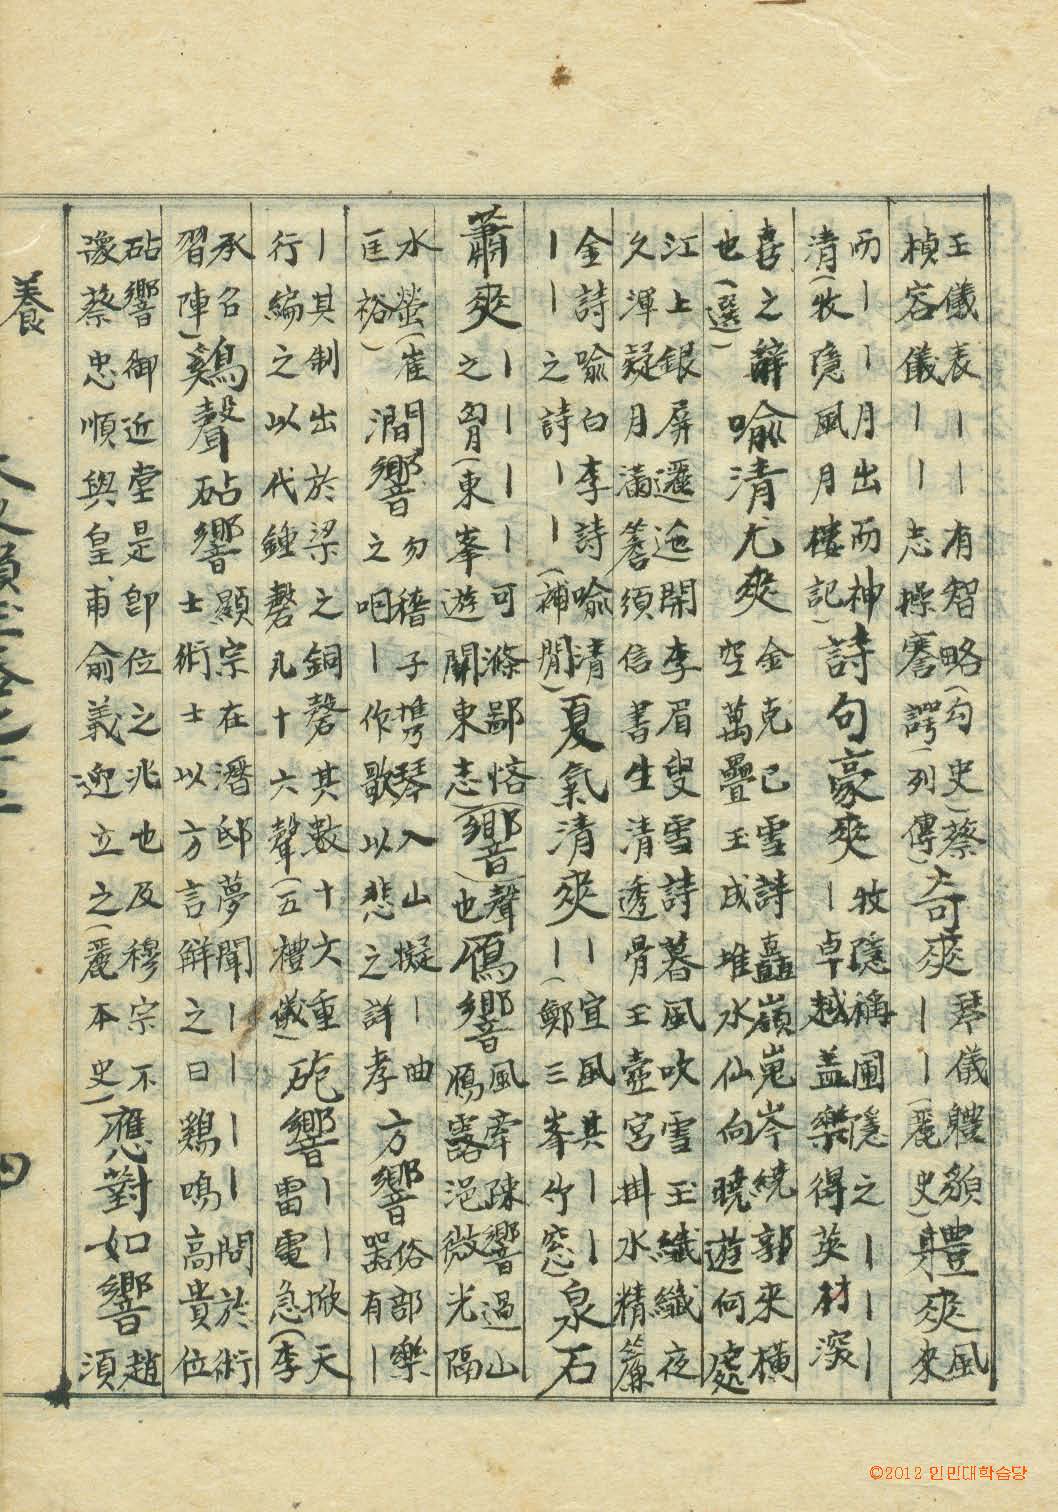 王儀表丨丨有智略(勾史)蔡
楨容儀丨丨志操謇諤(列傳)
奇爽
琴儀軆貌
丨丨(麗史)
體爽
風
來
而丨丨月出而神
清(牧隱風月樓記)
詩句豪爽
牧隱稱圃隱之丨丨丨
丨卓越盖樂得英材深
喜之辭
也(選)
喻清尤爽
金克已雪詩矗嶺嵬岑繞郭來橫
空萬疊玉成堆水仙向曉遊何處
江上銀屏邐迤開李眉叟雪詩暮風吹雪玉纖纖夜
久渾疑月滿簷須信書生清透骨玉壺宮掛水精簾
金詩喻白李詩喻清
丨丨之詩丨丨(補閒)
夏氣清爽
宜風其丨丨
丨丨(鄭三峯竹窓)
泉石
蕭爽
丨丨丨丨可滌鄙悋
之胷(東峯遊關東志)
(響)
聲
也
鴈響
風牽踈響過山
鴈露浥微光隔
水螢(崔
匡裕)
澗響
勿稽子携琴入山擬丨曲
之咽丨作歌以悲之詳孝
方響
俗部樂
器有丨
丨其制出於梁之銅磬其數十六重
行編之以代鍾磬凡十六聲(五禮儀)
砲響
丨丨掀天
雷電急(李
承召
習陣)
鷄聲砧響
顯宗在潛邸夢聞丨丨丨丨問於術
士術士以方言解之曰鷄鳴高貴位
砧響御近堂是即位之兆也及穆宗不
豫蔡忠順與皇甫俞義迎立之(麗本史)
應對如響
趙
須
養
©2012 인민대학습당